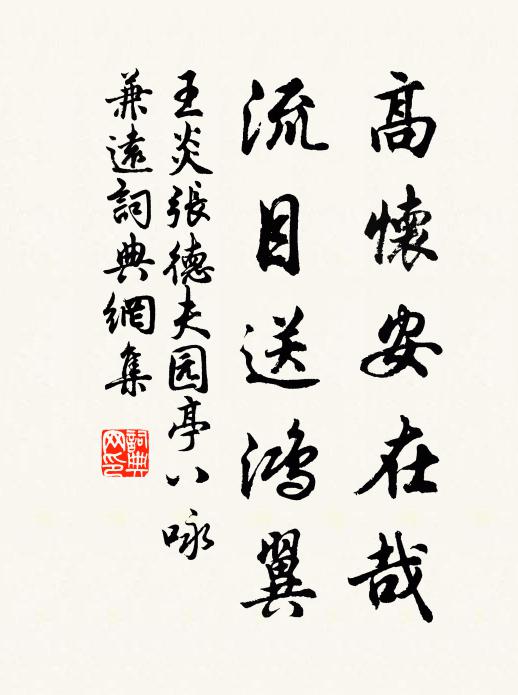 高懷安在哉
流目送鴻翼
王炎張德夫园亭八咏
兼遠詞典網集
詞典网印